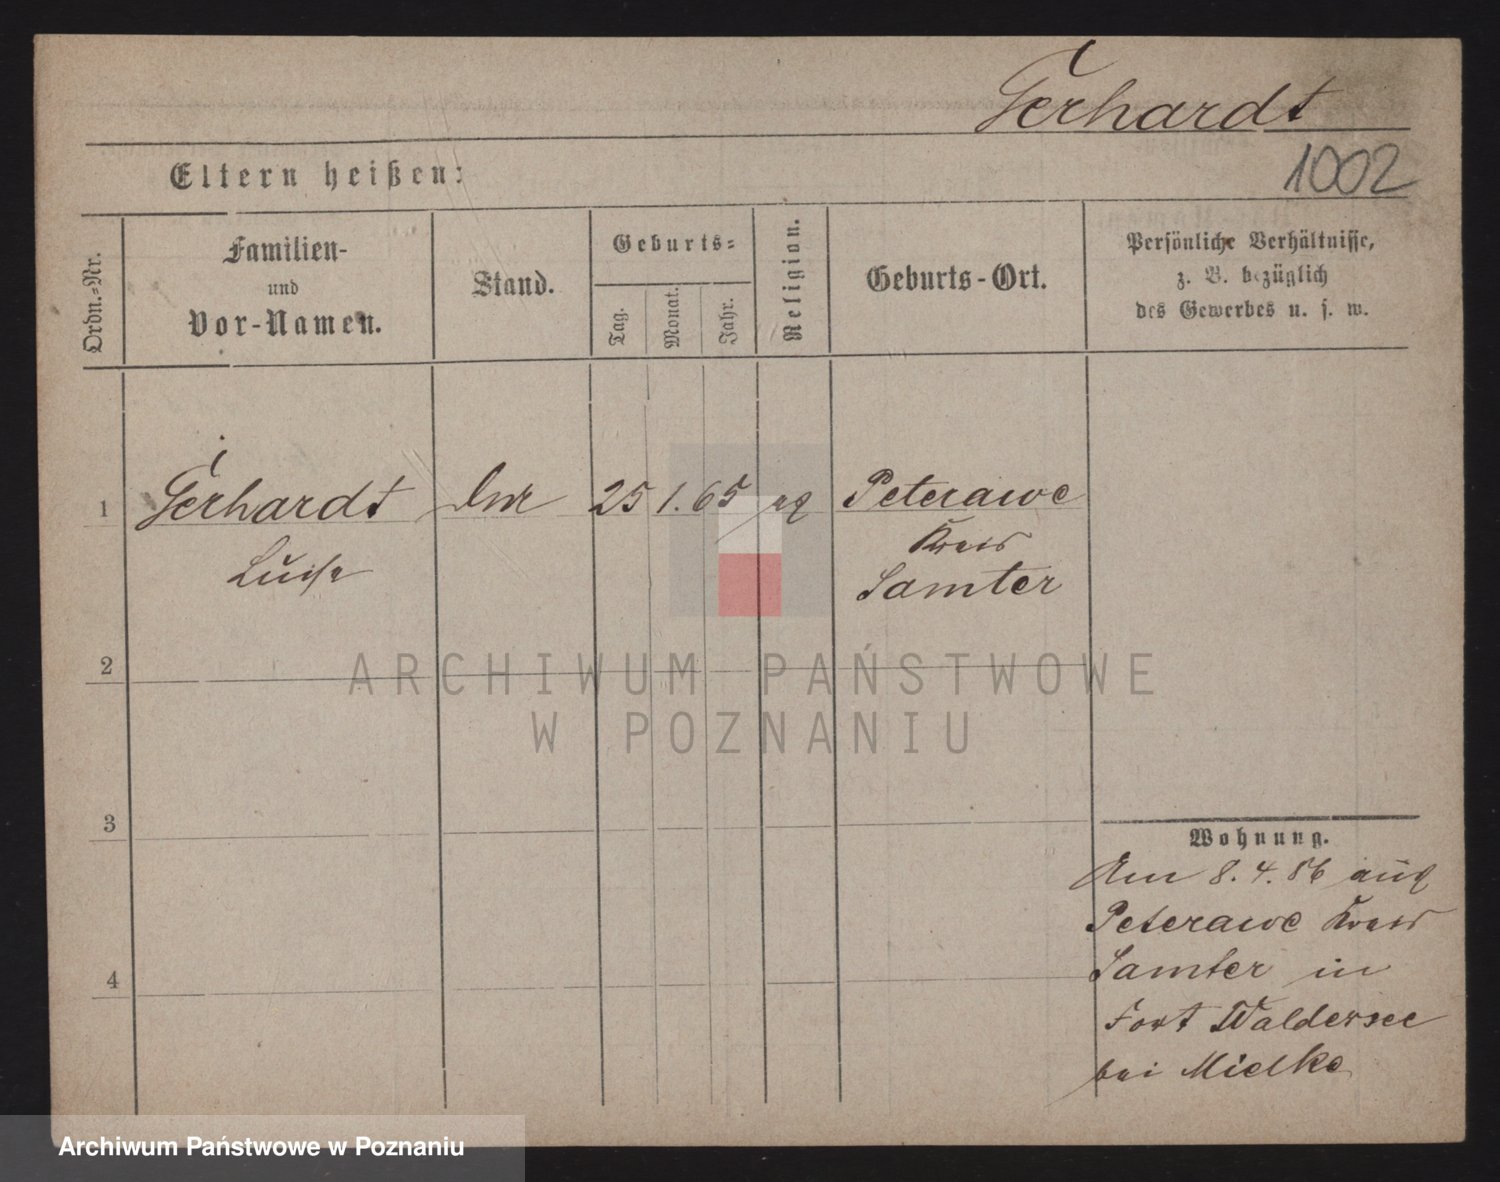 Gerhardt
1002
Eltern heißen:
Ordn.-Nr.
Familien-
und
Vor-Namen.
Stand.
Geburts-
Tag.
Monat.
Jahr.
Religion.
Geburts-Ort.
Persönliche Verhältnisse,
z. B. bezüglich
des Gewerbes u. s. w.
1 Gerhardt 25 1. 65 Peterawe
Luise Kreis
Samter
2
ARCHIWUM PAŃSTWOWE
W POZNANIU
3
Wohnung.
Am 8. 4. 86 aus
Peterawe Kreis
4
Samter in
Fort Waldersee
bei Mielke
Archiwum Państwowe w Poznaniu